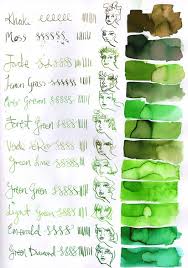 Khaki
Moss
Jade
Lemon Grass
Green
Forest Green
Green Lime
Green Green
Light Green
Emerald
Green Diamond